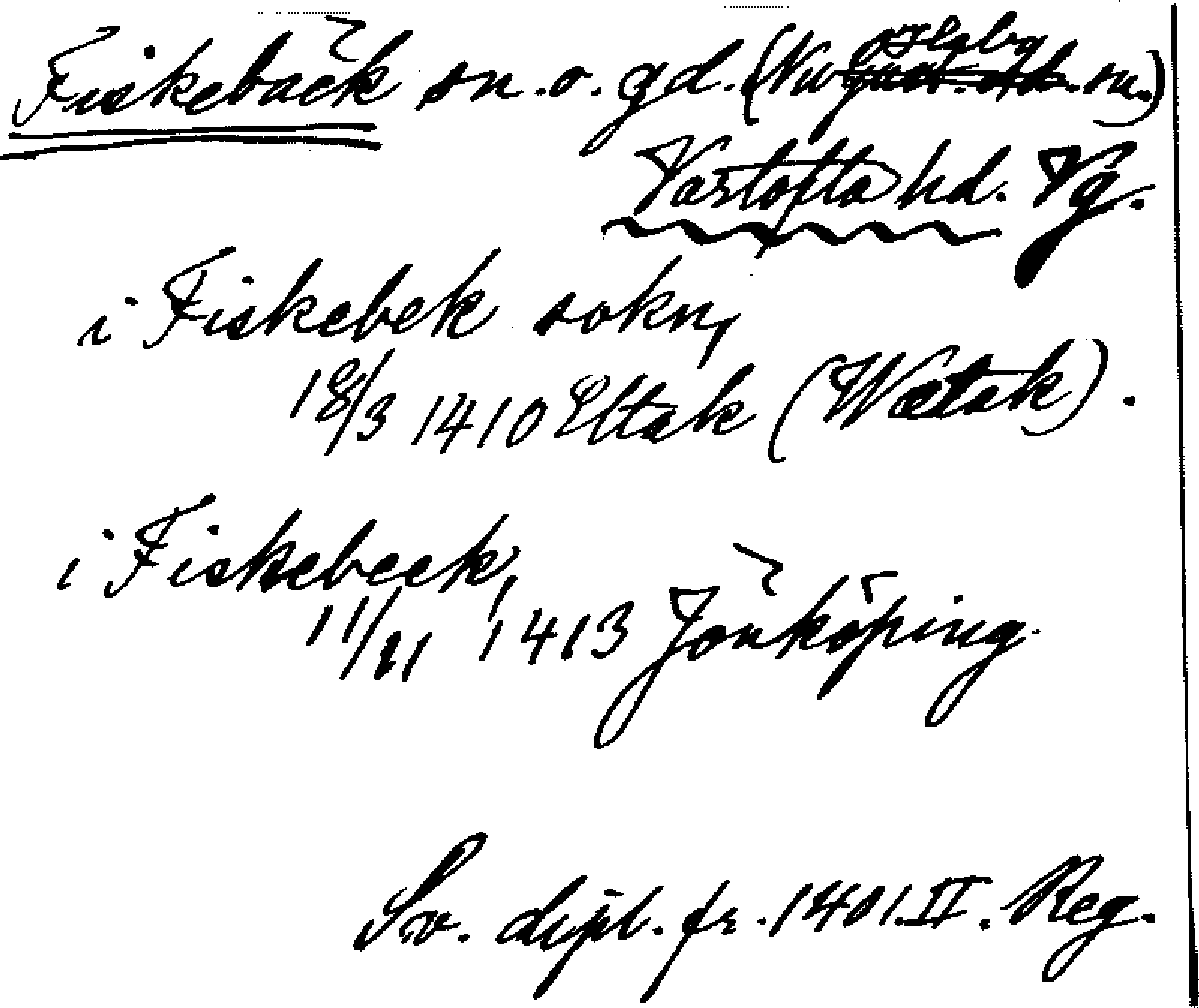 Fiskebäck sn. o. gd. (Nu Habo sn.)
Vartofta hd. Vg.
i Fiskebek sokn,
18/3 1410 Ettak (Wætak).
i Fiskebeck,
11/11 1413 Jönköping.
Sv. dipl. fr. 1401. II. Reg.